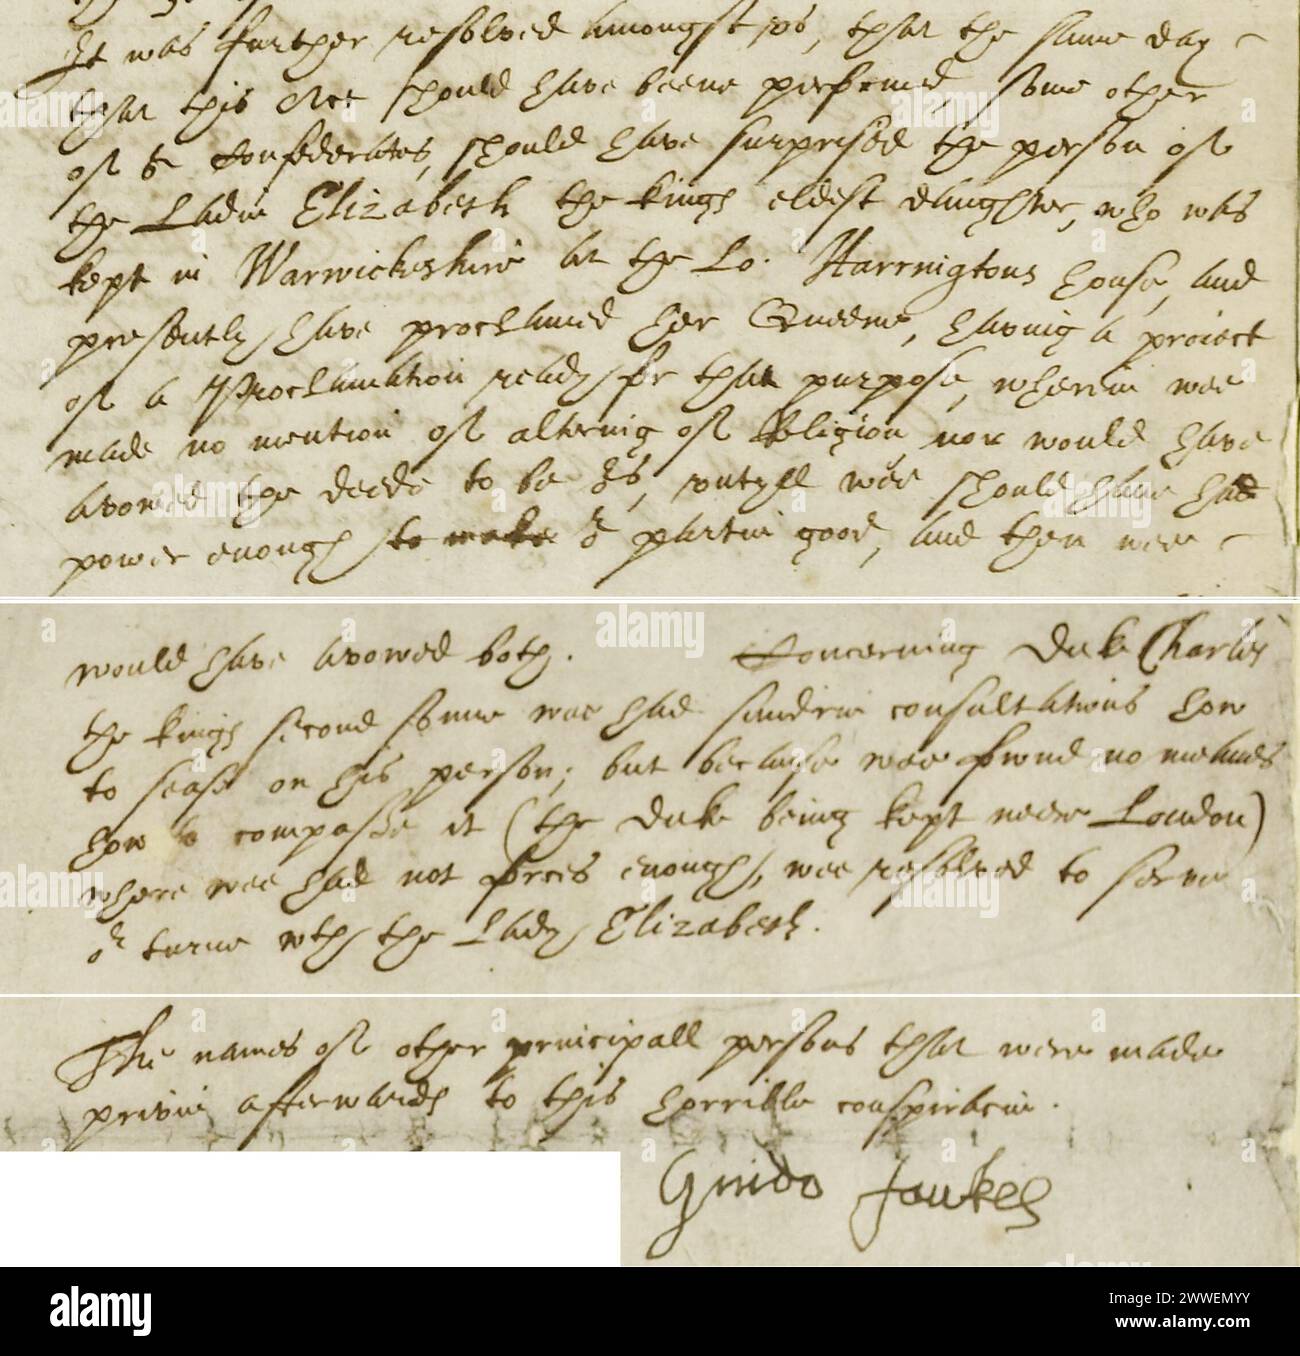 It was further resolved amongst vs, that the same day
that this Act should have beene performed, some other
of or Confederates, should have surprised the person of
the Ladie Elizabeth the kings eldest daughter, who was
kept in Warwickshire at the Lo. Harringtons house, and
presently have proclaimed her Queene, having a project
of a Proclamation ready for that purpose, wherein wee
made no mention of altering of Religion, nor would have
avowed the deede to be ors, vntyll wee should have had
power enough to make or partie good, and then wee
would have avowed both. Concerning Duke Charles
the kings second sonne wee had sundrie consultations how
to sease on his person; but because wee fownd no meanes
how to compasse it (the Duke being kept neere London)
where wee had not forces enough, wee resolved to serve
or turne wth the Lady Elizabeth.
The names of other principall persons that were made
privie afterwards to this horrible conspiracie.
Guido Faukes
alamy
Image ID: 2WWEMYY
www.alamy.com